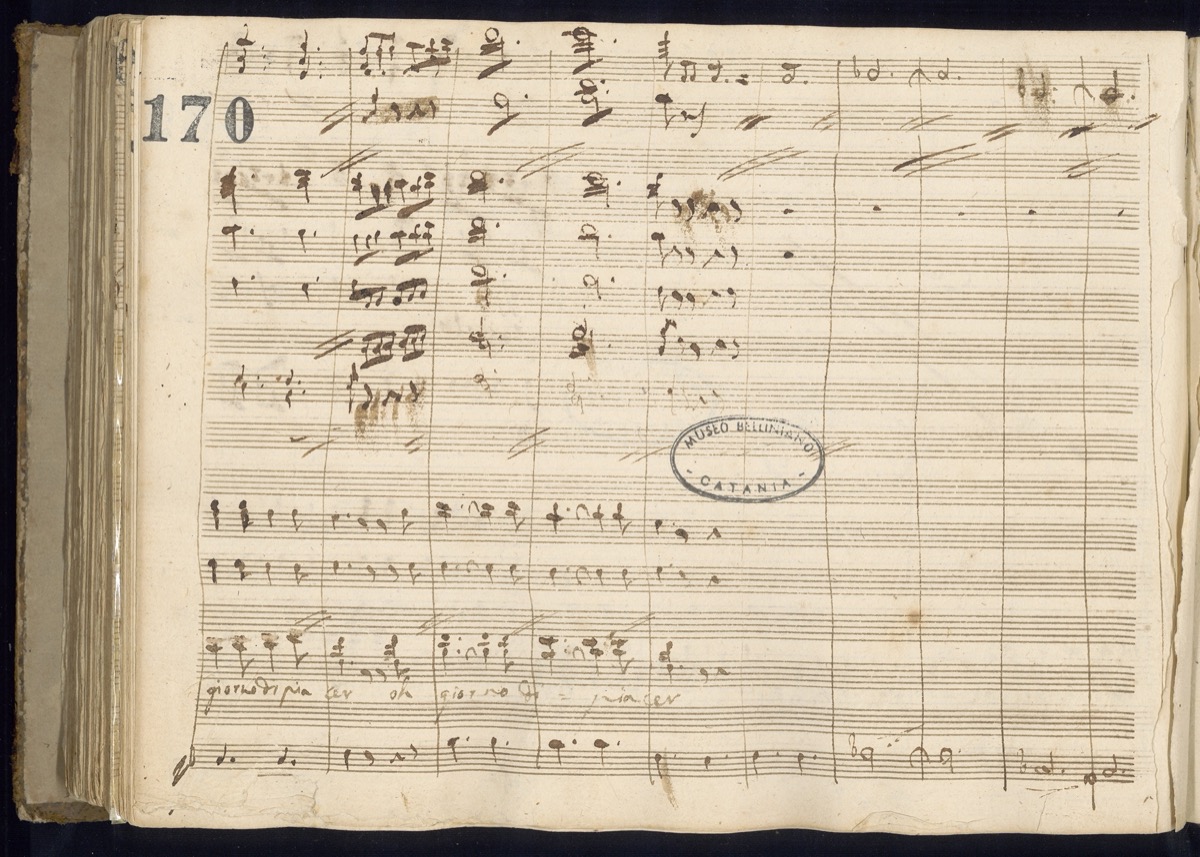 170
MUSEO BELLINIANO
- CATANIA -
giorno di pia cer oh giorno di = piacer